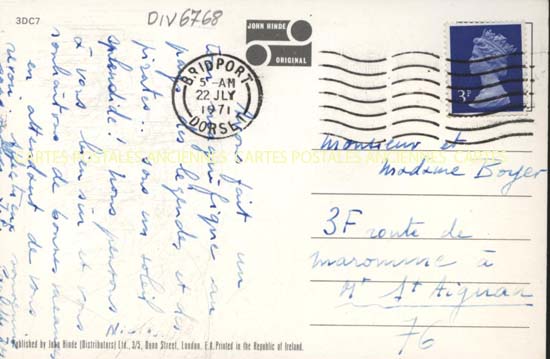 3DC7
DIV6768
JOHN HINDE
ORIGINAL
BRIDPORT
5 - AM
22 JLY
1971
DORSET
3P
un
fait
magnifique au
pays des légendes et des
pirates... un soleil
splendide! nous pensons
à vous bien sûr et vous
souhaitons de bonnes
en attendant de vous
CARTES POSTALES ANCIENNES CARTES POSTALES ANCIENNES CARTES
Monsieur et
Madame Boyer
3F route de
maromme à
Mt St Aignan
76
Published by John Hinde (Distributors) Ltd., 3/5, Dunn Street, London, E.8. Printed in the Republic of Ireland.